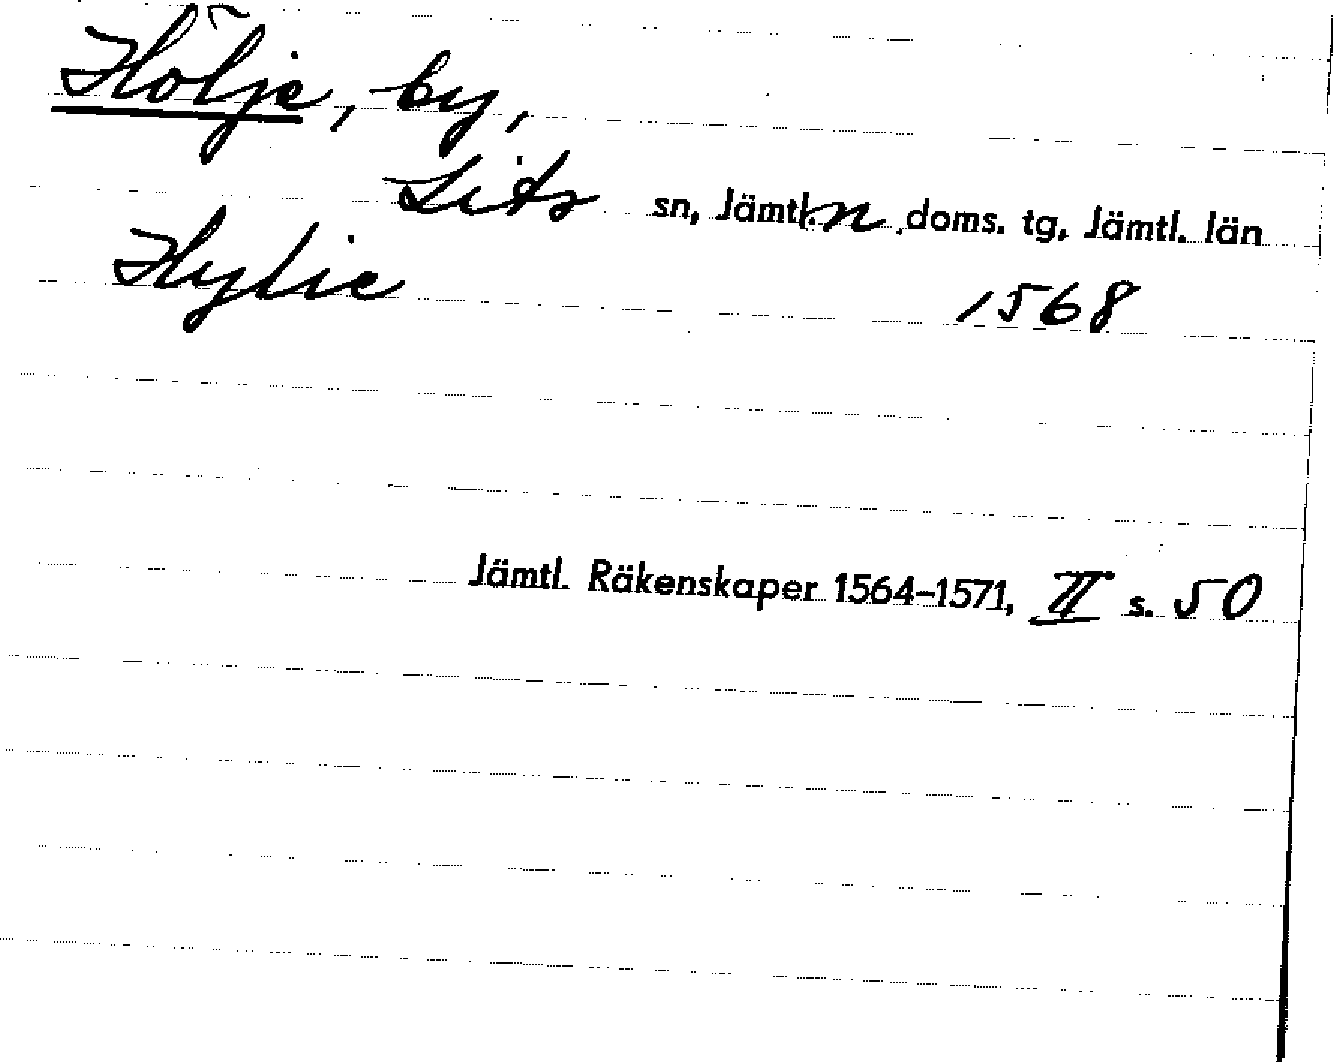 Hölje, by,
Lits sn, Jämtl. n. doms. tg, Jämtl. län
Hylie 1568
Jämtl. Räkenskaper 1564-1571, II s. 50